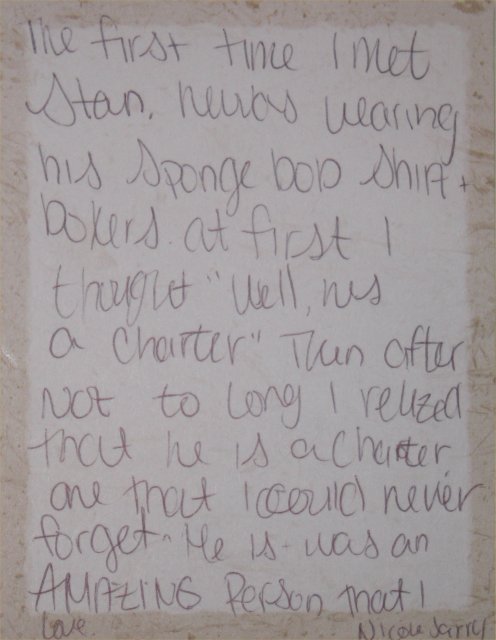 The first time I met
Stan, hewas wearing
his Sponge bob Shirt +
boxers. at first I
thought "Well, hes
a Charter" Then after
Not to Long I relized
that he is a Charter
one that I could never
forget. He is - was an
AMAZING Person that I
Love. Nicole